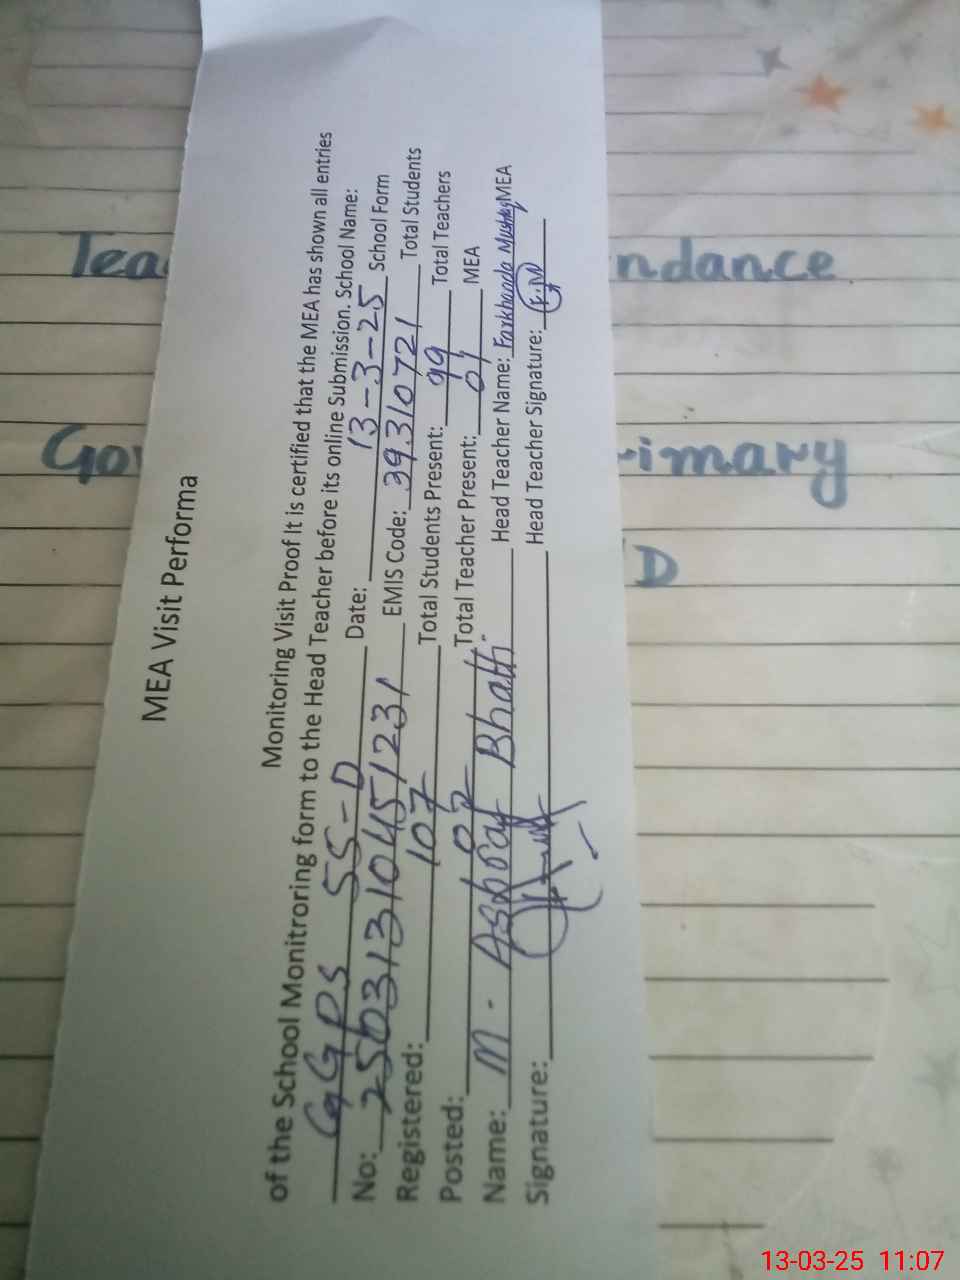 MEA Visit Performa
Monitoring Visit Proof It is certified that the MEA has shown all entries
of the School Monitroring form to the Head Teacher before its online Submission. School Name:
GGPS 55-D Date: 13-3-25 School Form
No: 25031310451231 EMIS Code: 39310721 Total Students
Registered: 107 Total Students Present: 99 Total Teachers
Posted: 02 Total Teacher Present: 01 MEA
Name: M. Ashraf Bhatti Head Teacher Name: Farkhanda Mushtaq MEA
Signature: Head Teacher Signature: F.M
Tea ndance
Gov rimary
D
13-03-25 11:07